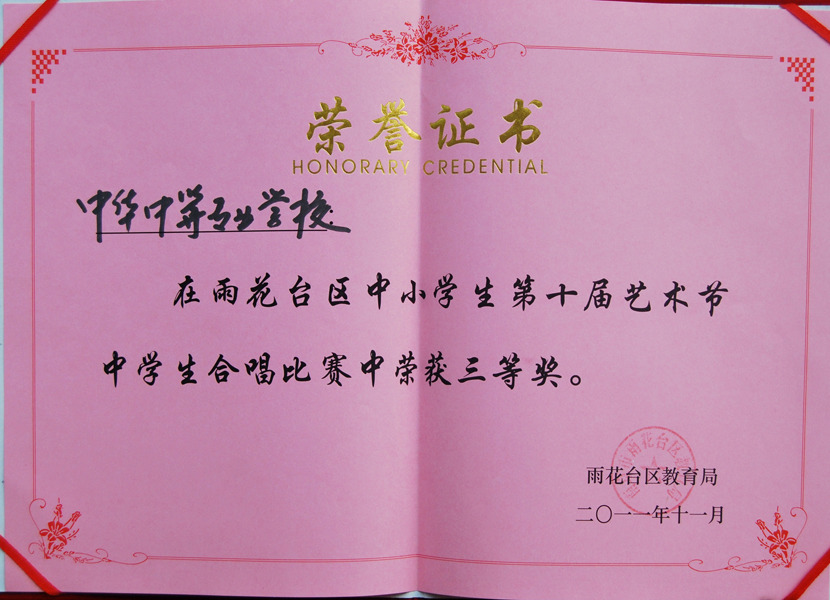 荣誉证书
HONORARY CREDENTIAL
中华中等专业学校:
在雨花台区中小学生第十届艺术节
中学生合唱比赛中荣获三等奖。
雨花台区教育局
二〇一一年十一月